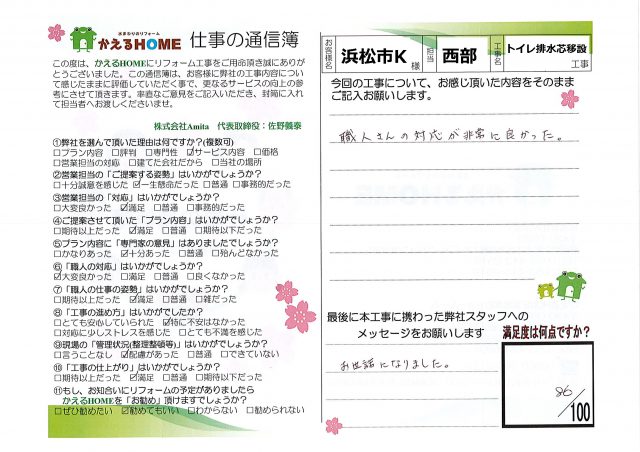 水まわりのリフォーム
かえるHOME 仕事の通信簿
この度は、かえるHOMEにリフォーム工事をご用命頂き誠にありが
とうございました。この通信簿は、お客様に弊社の工事内容につい
て感じたままに評価していただく事で、更なるサービスの向上の参
考にさせて頂きます。率直なご意見をご記入いただき、封筒に入れ
て担当者へお渡しくださいませ。
株式会社Amita 代表取締役：佐野義泰
①弊社を選んで頂いた理由は何ですか?(複数可)
□プラン内容 □評判 □専門性 ☑サービス内容 □価格
□営業担当の対応 □建てた会社だから □当社の場所
②営業担当の「ご提案する姿勢」はいかがでしょうか？
□十分誠意を感じた ☑一生懸命だった □普通 □事務的だった
③営業担当の「対応」はいかがでしょうか？
□大変良かった ☑満足 □普通 □事務的だった
④ご提案させて頂いた「プラン内容」はいかがでしょうか？
□期待以上だった ☑満足 □普通 □期待以下だった
⑤プラン内容に「専門家の意見」はありましたでしょうか？
□かなりあった ☑十分あった □普通 □殆んどなかった
⑥「職人の対応」はいかがでしょうか？
☑大変良かった □満足 □普通 □良くなかった
⑦「職人の仕事の姿勢」はいかがでしょうか？
□期待以上だった ☑満足 □普通 □雑だった
⑧「工事の進め方」はいかがでしたか？
□とても安心していられた ☑特に不安はなかった
□対応に少しストレスを感じた □とても不満を感じた
⑨現場の「管理状況(整理整頓等)」はいかがでしょうか？
□言うことなし ☑配慮があった □普通 □できていない
⑩「工事の仕上がり」はいかがでしょうか？
□期待以上だった ☑満足 □普通 □期待以下だった
⑪もし、お知合いにリフォームの予定がありましたら
かえるHOMEを「お勧め」頂けますでしょうか？
□ぜひ勧めたい ☑勧めてもいい □わからない □勧められない
お客様名 浜松市K 様 担当 西部 工事名 トイレ排水芯移設 工事
今回の工事について、お感じ頂いた内容をそのまま
ご記入お願いします。
職人さんの対応が非常に良かった。
最後に本工事に携わった弊社スタッフへの
メッセージをお願いします
お世話になりました。
満足度は何点ですか?
86
/100